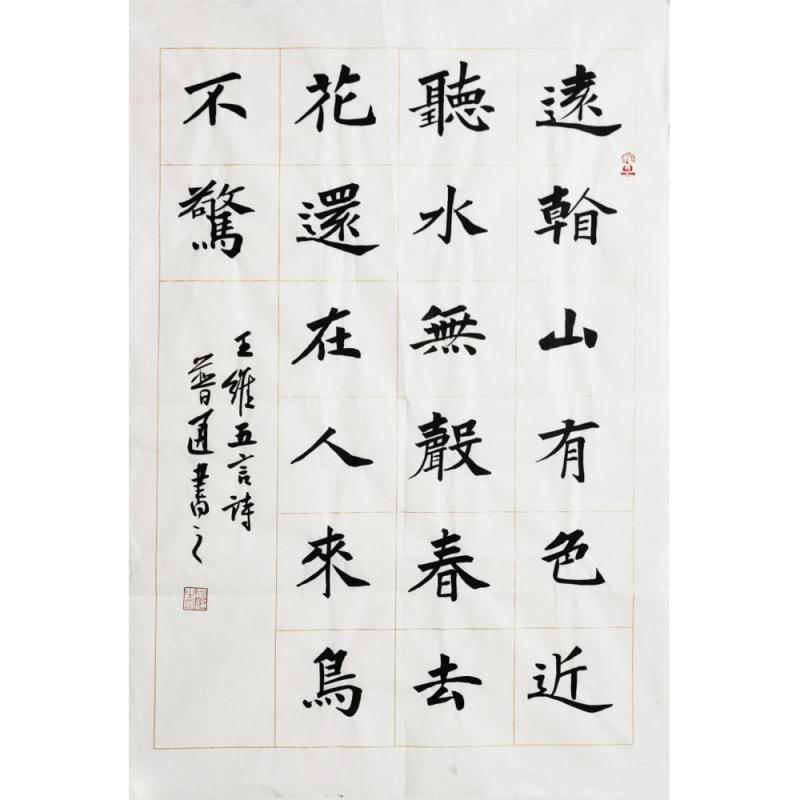 遠看山有色近
聽水無聲春去
花還在人來鳥
不驚
王維五言詩
普通書之